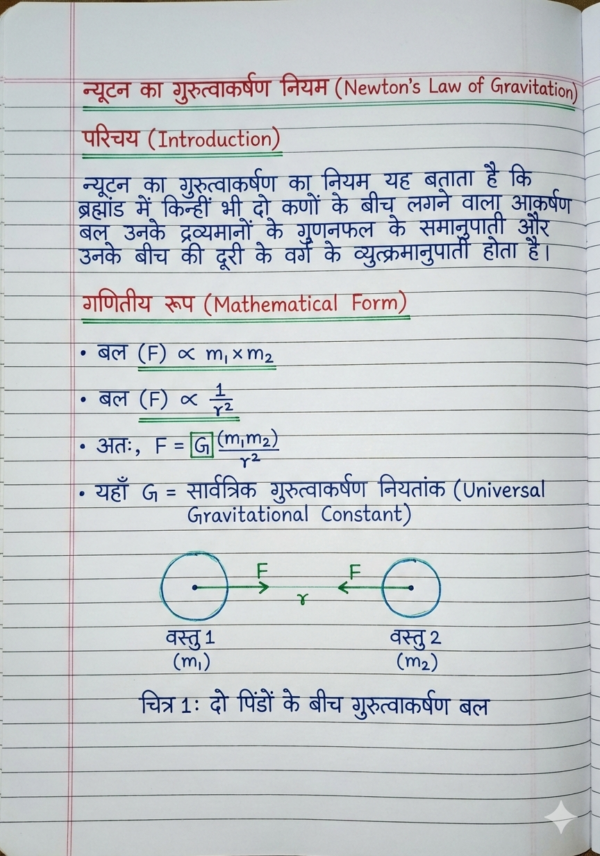 न्यूटन का गुरुत्वाकर्षण नियम (Newton's Law of Gravitation)
परिचय (Introduction)
न्यूटन का गुरुत्वाकर्षण का नियम यह बताता है कि
ब्रह्मांड में किन्हीं भी दो कणों के बीच लगने वाला आकर्षण
बल उनके द्रव्यमानों के गुणनफल के समानुपाती और
उनके बीच की दूरी के वर्ग के व्युत्क्रमानुपाती होता है।
गणितीय रूप (Mathematical Form)
• बल (F) ∝ m₁ × m₂
• बल (F) ∝ 1/r²
• अतः, F = G (m₁m₂)/r²
• यहाँ G = सार्वत्रिक गुरुत्वाकर्षण नियतांक (Universal
Gravitational Constant)
F F
r
वस्तु 1 वस्तु 2
(m₁) (m₂)
चित्र 1: दो पिंडों के बीच गुरुत्वाकर्षण बल